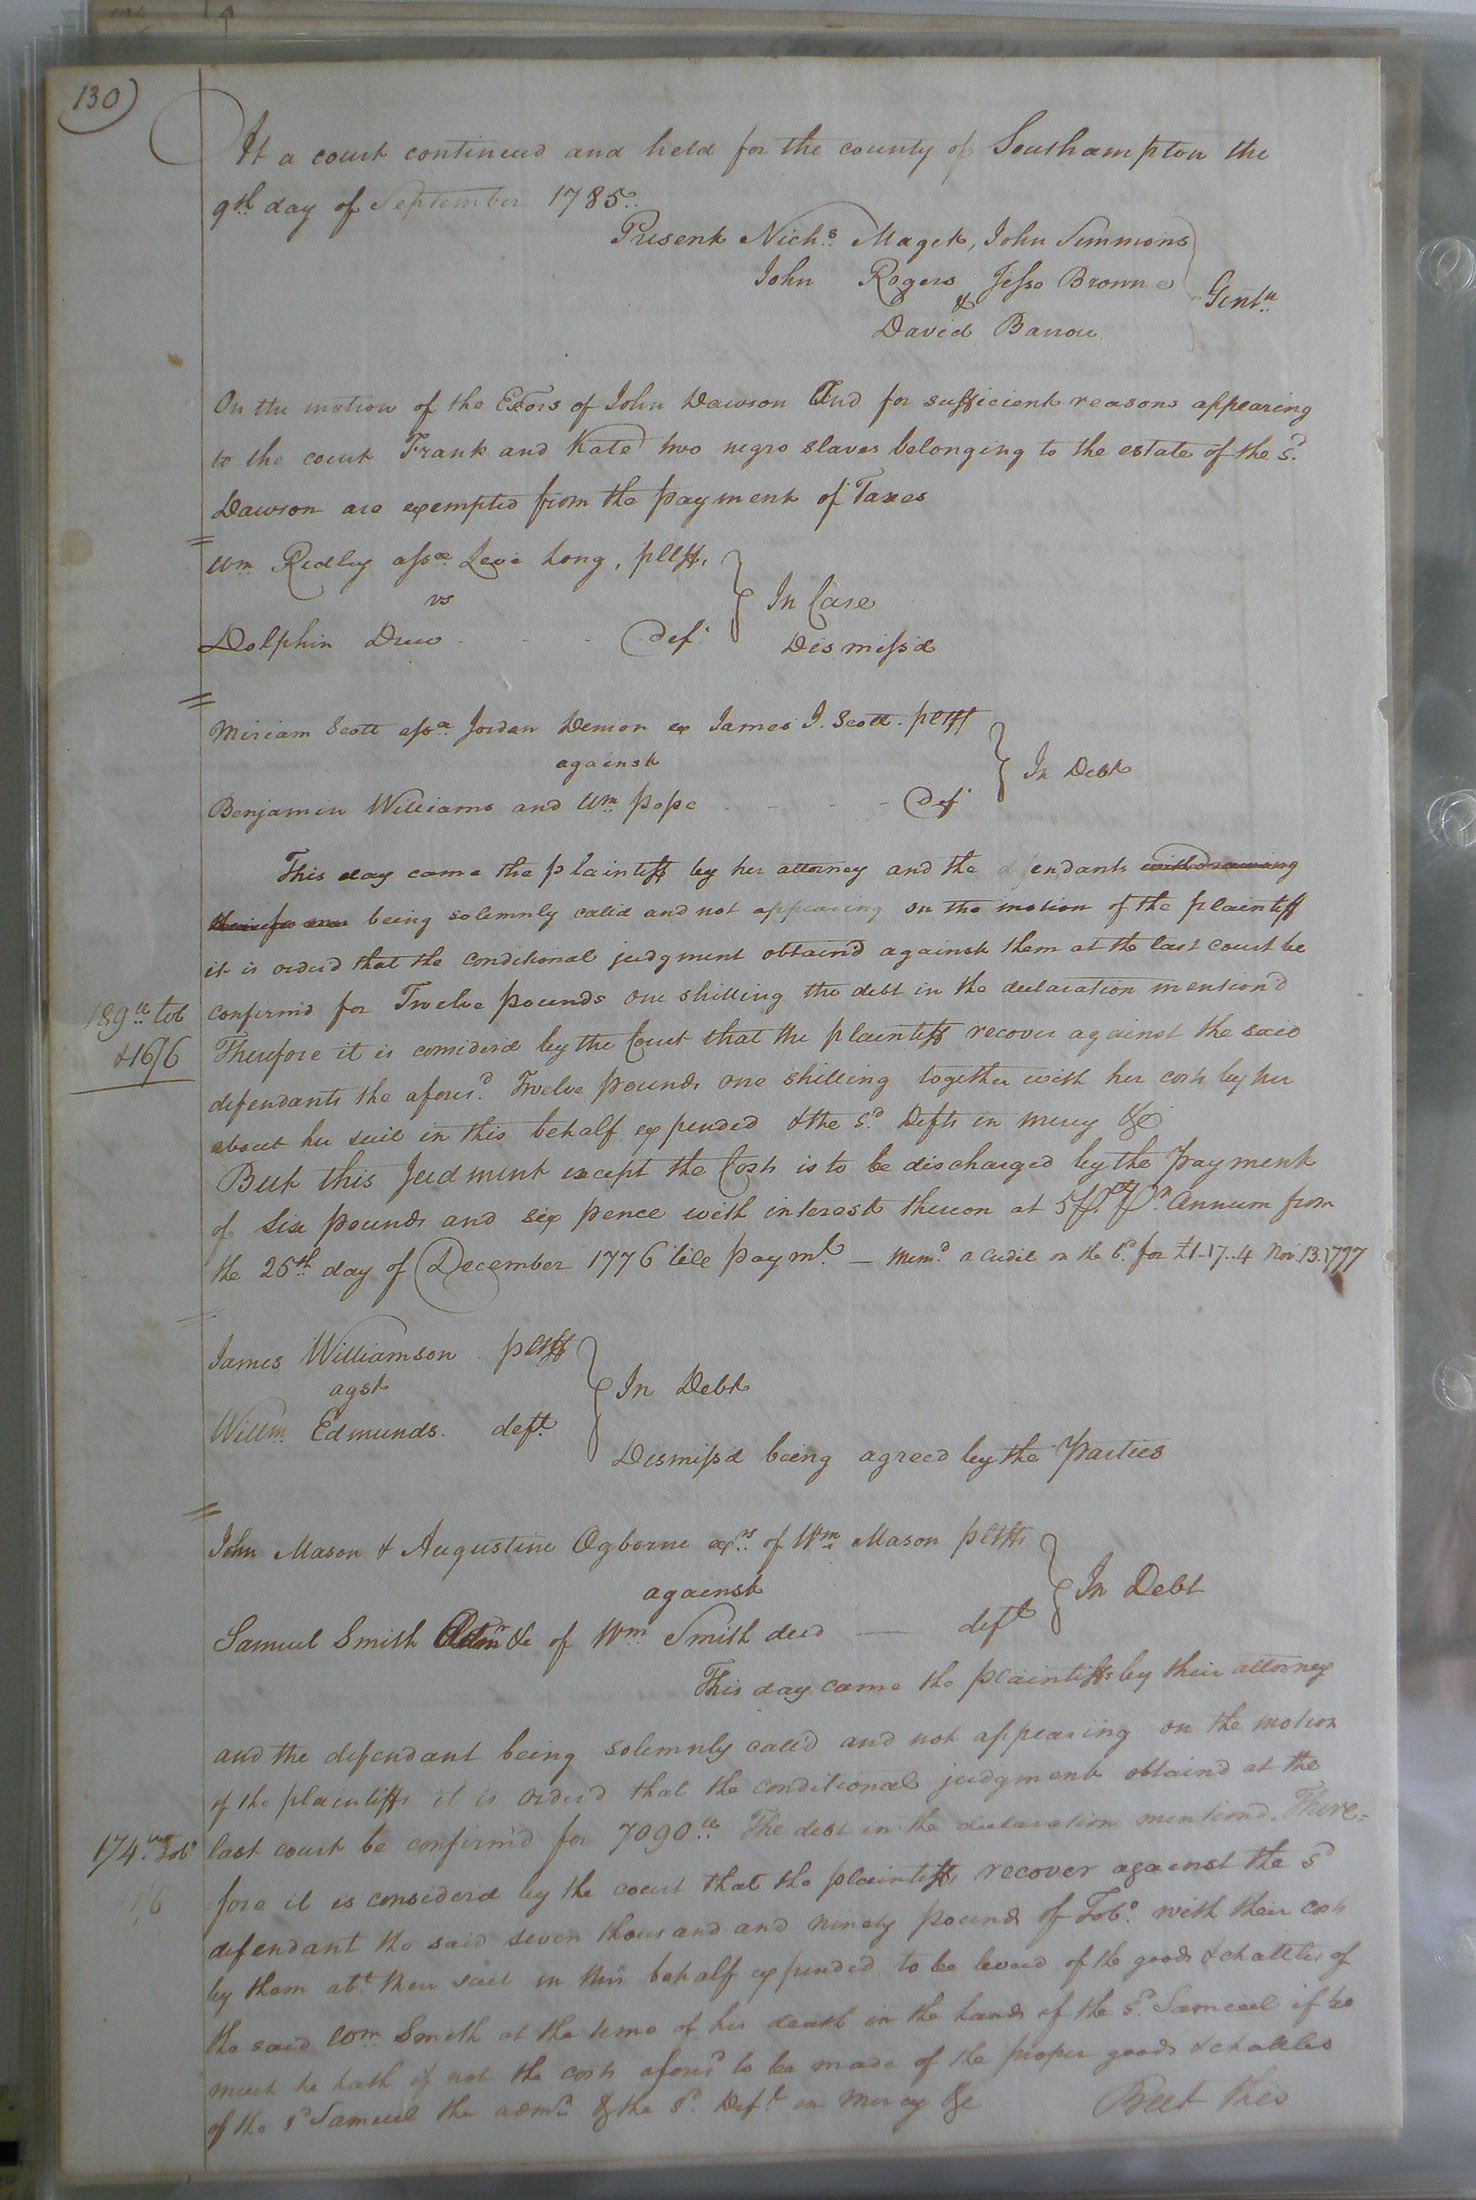 130
At a court continued and held for the county of Southampton the
9th day of September 1785.
Present Nichs. Maget, John Simmons
John Rogers Jesse Browne Gentn.
&
David Barrow
On the motion of the Exors of John Dawson And for sufficient reasons appearing
to the court Frank and Kate two negro slaves belonging to the estate of the sd.
Dawson are exempted from the payment of Taxes
Wm Ridley assee. Levi Long, pltff,
vs In Case
Dolphin Drew Def. Dismiss'd
Miriam Scott assee. Jordan Denson ex James J. Scott. pltff
against In Debt
Benjamin Williams and Wm. pope Def
This day came the plaintiff by her attorney and the defendants withdrawing
being solemnly calld and not appearing on the motion of the plaintiff
it is orderd that the conditional judgment obtain'd against them at the last court be
confirm'd for Twelve pounds one shilling the debt in the declaration mention'd
189 lb tob
&16/6
Therefore it is considerd by the Court that the plaintiff recover against the said
defendants the aforesd. Twelve pounds one shilling together with her costs by her
about her suit in this behalf expended & the sd. Defts in mercy &c
But this Judment except the Costs is to be discharged by the payment
of six pounds and six pence with interest thereon at 5 PCt. Pr. Annum from
the 25th day of December 1776 till paymt. — Memo a credit on the bd. for £1..17..4 Nov. 13. 1777
James Williamson pltff
agst In Debt
Willm. Edmunds. deft.
Dismiss'd being agreed by the Parties
John Mason & Augustine Ogborne exrs. of Wm Mason pltffs
against In Debt
Samuel Smith Admr &c of Wm Smith decd — deft
This day came the plaintiffs by their attorney
and the defendant being solemnly calld and not appearing on the motion
of the plaintiffs it is orderd that the conditional judgment obtaind at the
last court be confirm'd for 7090 lb The debt in the declaration mentiond. There=
174 Tobo
fore it is considerd by the court that the plaintiffs recover against the sd
defendant the said seven thousand and ninety pounds of Tobo. with their costs
by them abt. their suit in this behalf expended to be levied of the goods & chattles of
the said Wm Smith at the time of his death in the hands of the sd. Samuel if so
much he hath if not the costs aforesd to be made of the proper goods & chattles
of the sd Samuel the admr. & the sd. Deft. in mercy &c But this